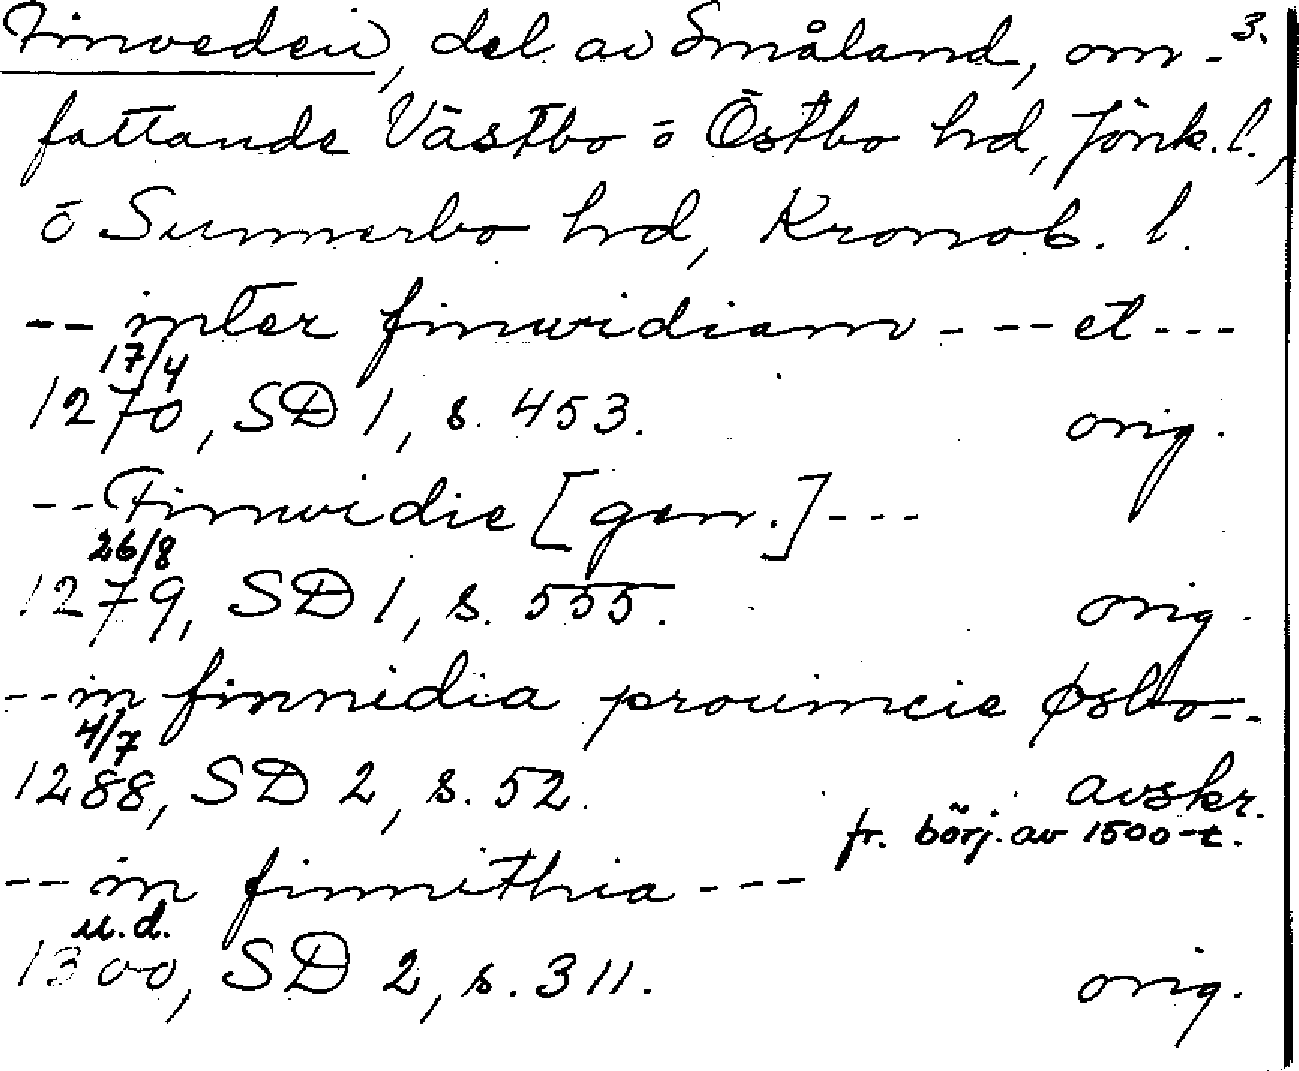 Finveden, del av Småland, om- 3.
fattande Västbo o Östbo hd, Jönk. l.,
o Sunnerbo hd, Kronob. l.
-- inter finwidiam --- et ---
17/4
1270, SD 1, s. 453. orig.
-- Finwidie [gen.] ---
26/8
1279, SD 1, s. 555. orig.
-- in finnidia prouincie øsbo --
4/7
1288, SD 2, s. 52. avskr.
fr. börj. av 1500-t.
-- in finnithia ---
u.d.
1300, SD 2, s. 311. orig.